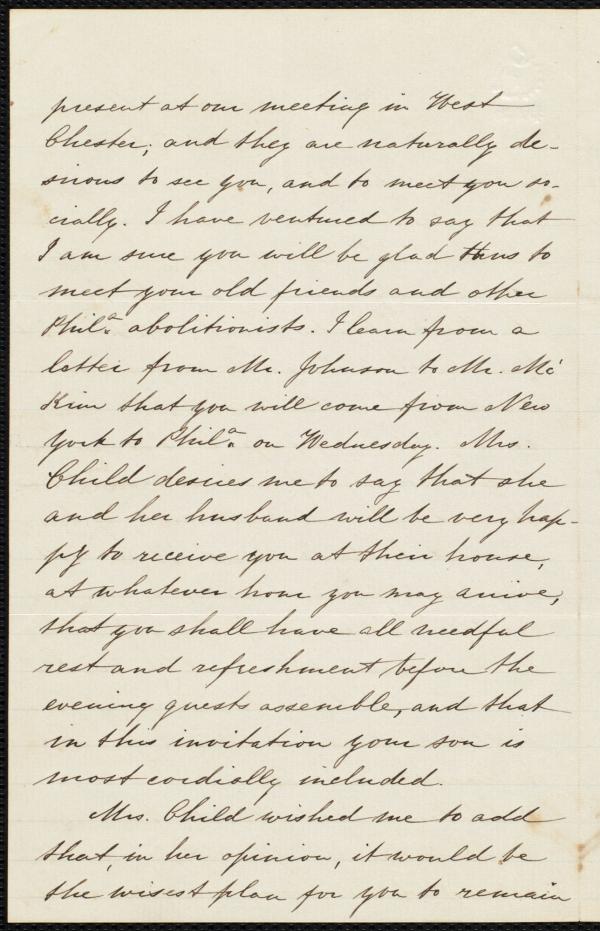 present at our meeting in West
Chester; and they are naturally de-
sirous to see you, and to meet you so-
cially. I have ventured to say that
I am sure you will be glad thus to
meet your old friends and other
Phila. abolitionists. I learn from a
letter from Mr. Johnson to Mr. Mc
Kim that you will come from New
York to Phila. on Wednesday. Mrs.
Child desires me to say that she
and her husband will be very hap-
py to receive you at their house,
at whatever hour you may arrive,
that you shall have all needful
rest and refreshment before the
evening guests assemble, and that
in this invitation your son is
most cordially included.
Mrs. Child wished me to add
that, in her opinion, it would be
the wisest plan for you to remain